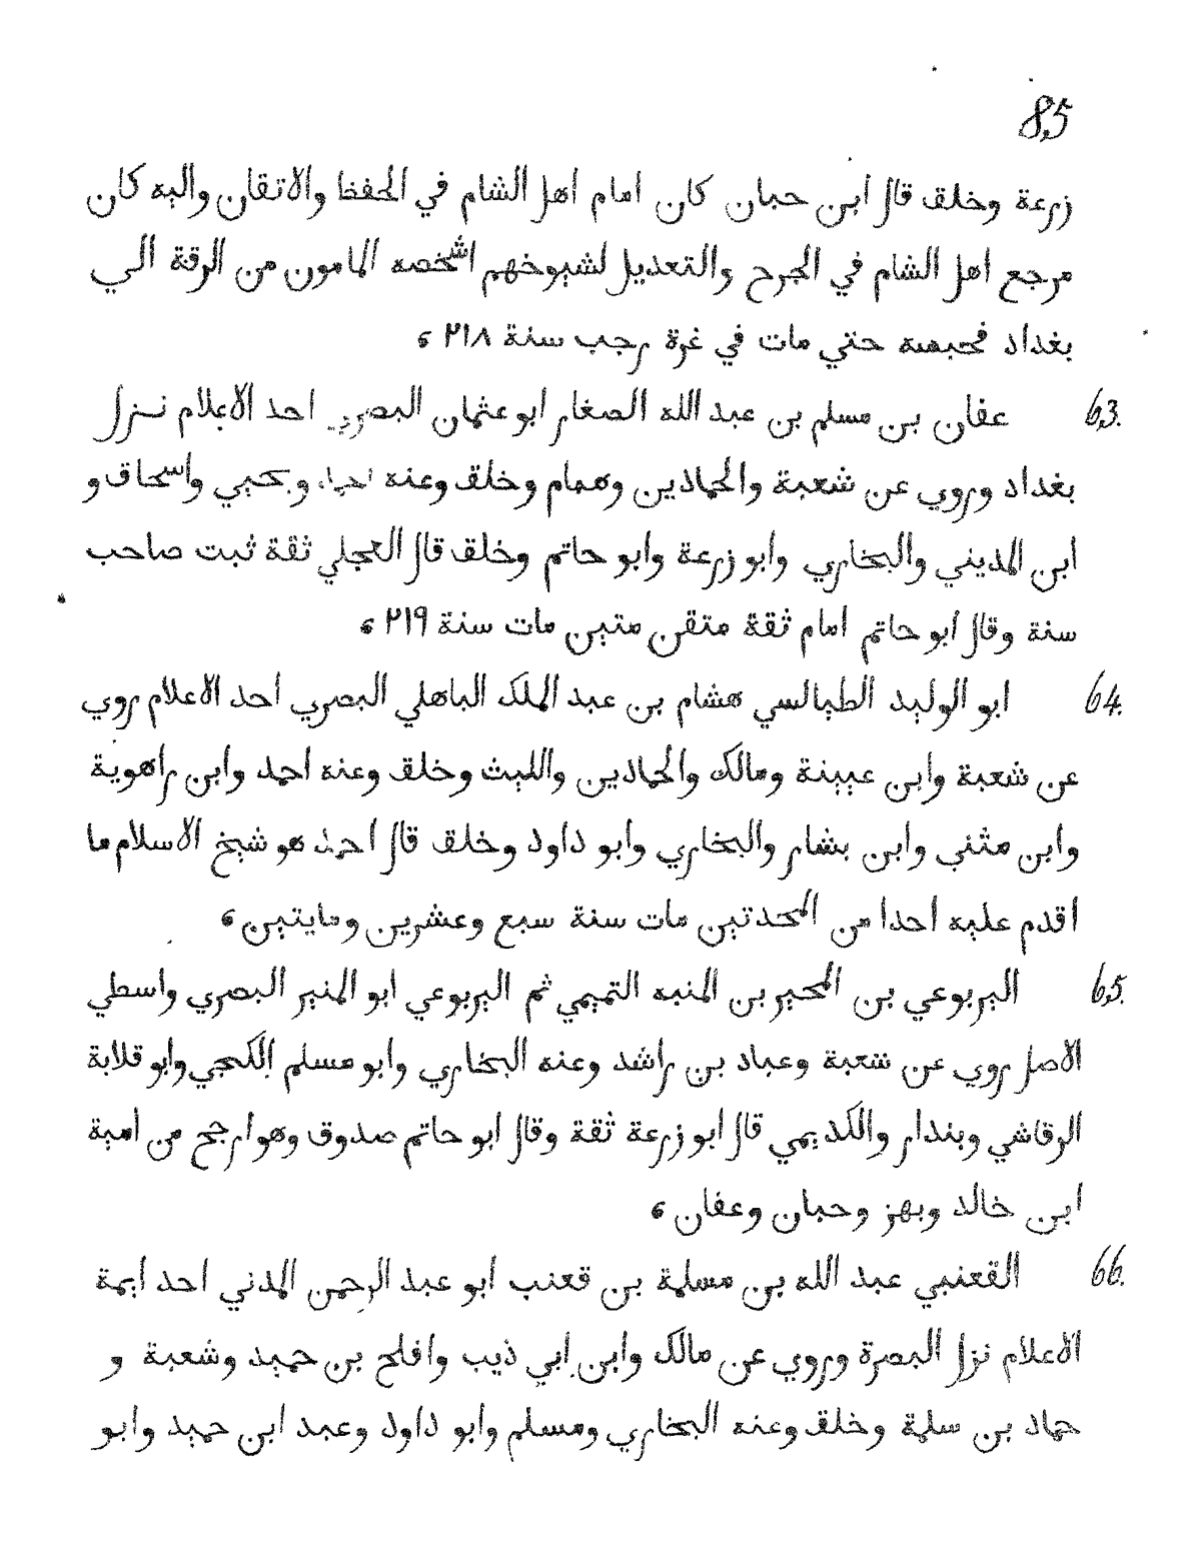 85
زرعة وخلق قال ابن حبان كان امام اهل الشام في الحفظ والاتقان واليه كان
مرجع اهل الشام في الجرح والتعديل لشيوخهم اشخصه المامون من الرقة الي
بغداد فحبسه حتي مات في غرة رجب سنة ٢١٨ ۀ
63. عفان بن مسلم بن عبد الله الصغار ابو عثمان البصري احد الاعلام نزل
بغداد وروي عن شعبة والحمادين وهمام وخلق وعنه احمد ويحيي واسحاق و
ابن المديني والبخاري وابو زرعة وابو حاتم وخلق قال العجلي ثقة ثبت صاحب
سنة وقال ابو حاتم امام ثقة متقن متين مات سنة ٢١٩ ۀ
64. ابو الوليد الطيالسي هشام بن عبد الملك الباهلي البصري احد الاعلام روي
عن شعبة وابن عيينة ومالك والحمادين والليث وخلق وعنه احمد وابن راهوية
وابن مثني وابن بشار والبخاري وابو داود وخلق قال احمد هو شيخ الاسلام ما
اقدم عليه احدا من المحدثين مات سنة سبع وعشرين ومايتين ۀ
65. اليربوعي بن المحبر بن المنبه التميمي ثم اليربوعي ابو المنير البصري واسطي
الاصل روي عن شعبة وعباد بن راشد وعنه البخاري وابو مسلم الكجي وابو قلابة
الرقاشي وبندار والكديمي قال ابو زرعة ثقة وقال ابو حاتم صدوق وهو ارجح من امية
ابن خالد وبهز وحبان وعفان ۀ
66. القعنبي عبد الله بن مسلمة بن قعنب ابو عبد الرحمن المدني احد ايمة
الاعلام نزل البصرة وروي عن مالك وابن ابي ذيب وافلح بن حميد وشعبة و
حماد بن سلمة وخلق وعنه البخاري ومسلم وابو داود وعبد ابن حميد وابو